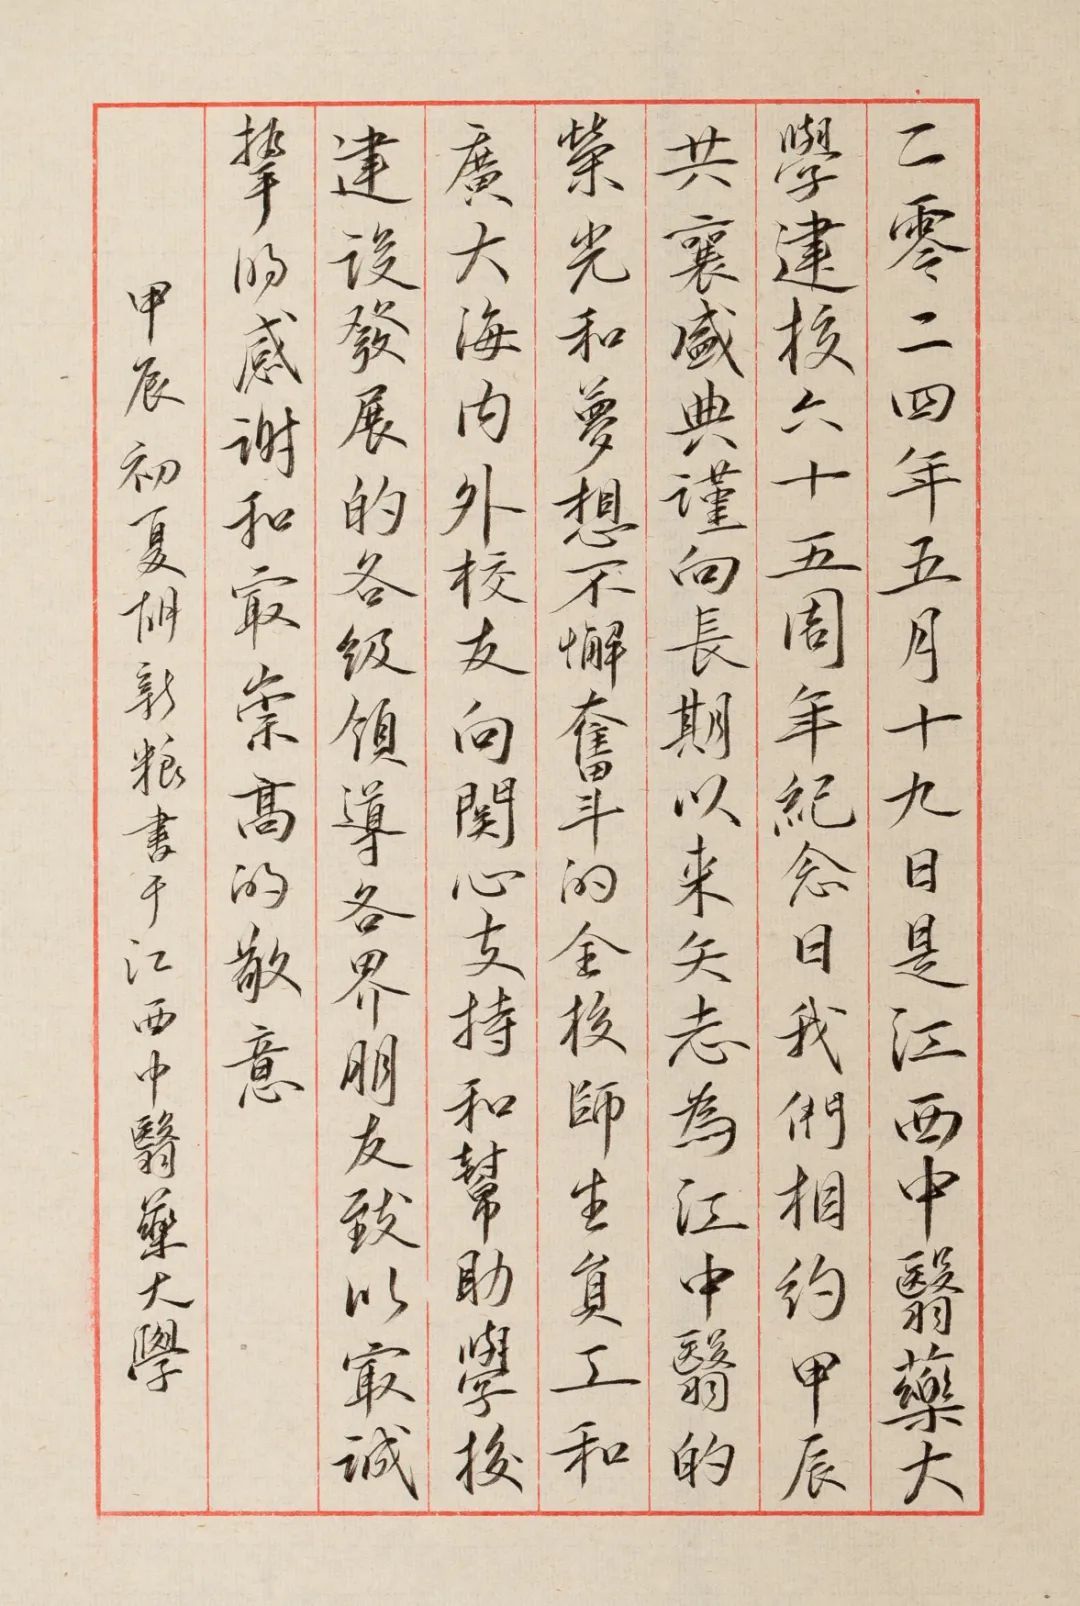 二零二四年五月十九日是江西中醫藥大
學建校六十五周年紀念日我們相約甲辰
共襄盛典謹向長期以来矢志為江中醫的
榮光和夢想不懈奮斗的全校師生員工和
廣大海内外校友向関心支持和幫助學校
建設發展的各级領導各界朋友致以寂誠
摯的感謝和寂崇高的敬意
甲辰初夏胡新粮書于江西中醫藥大學